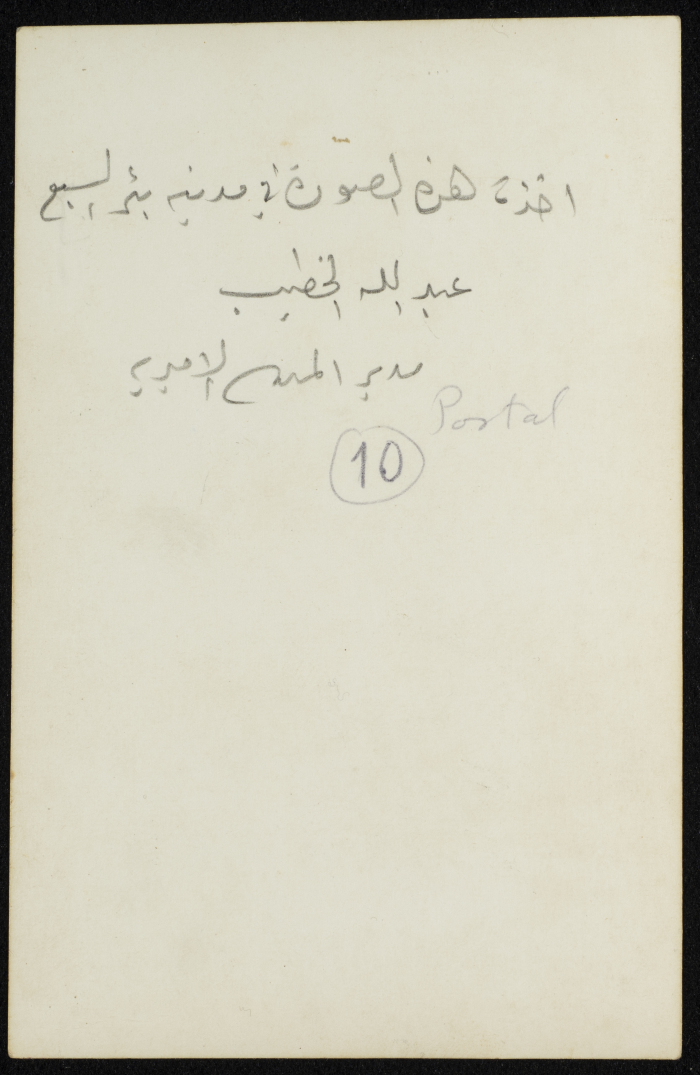 اخذة هذه الصورة في مدينه بئر السبع
عبد الله الخطيب
مدير المدرسه الاميريه
Postal
10